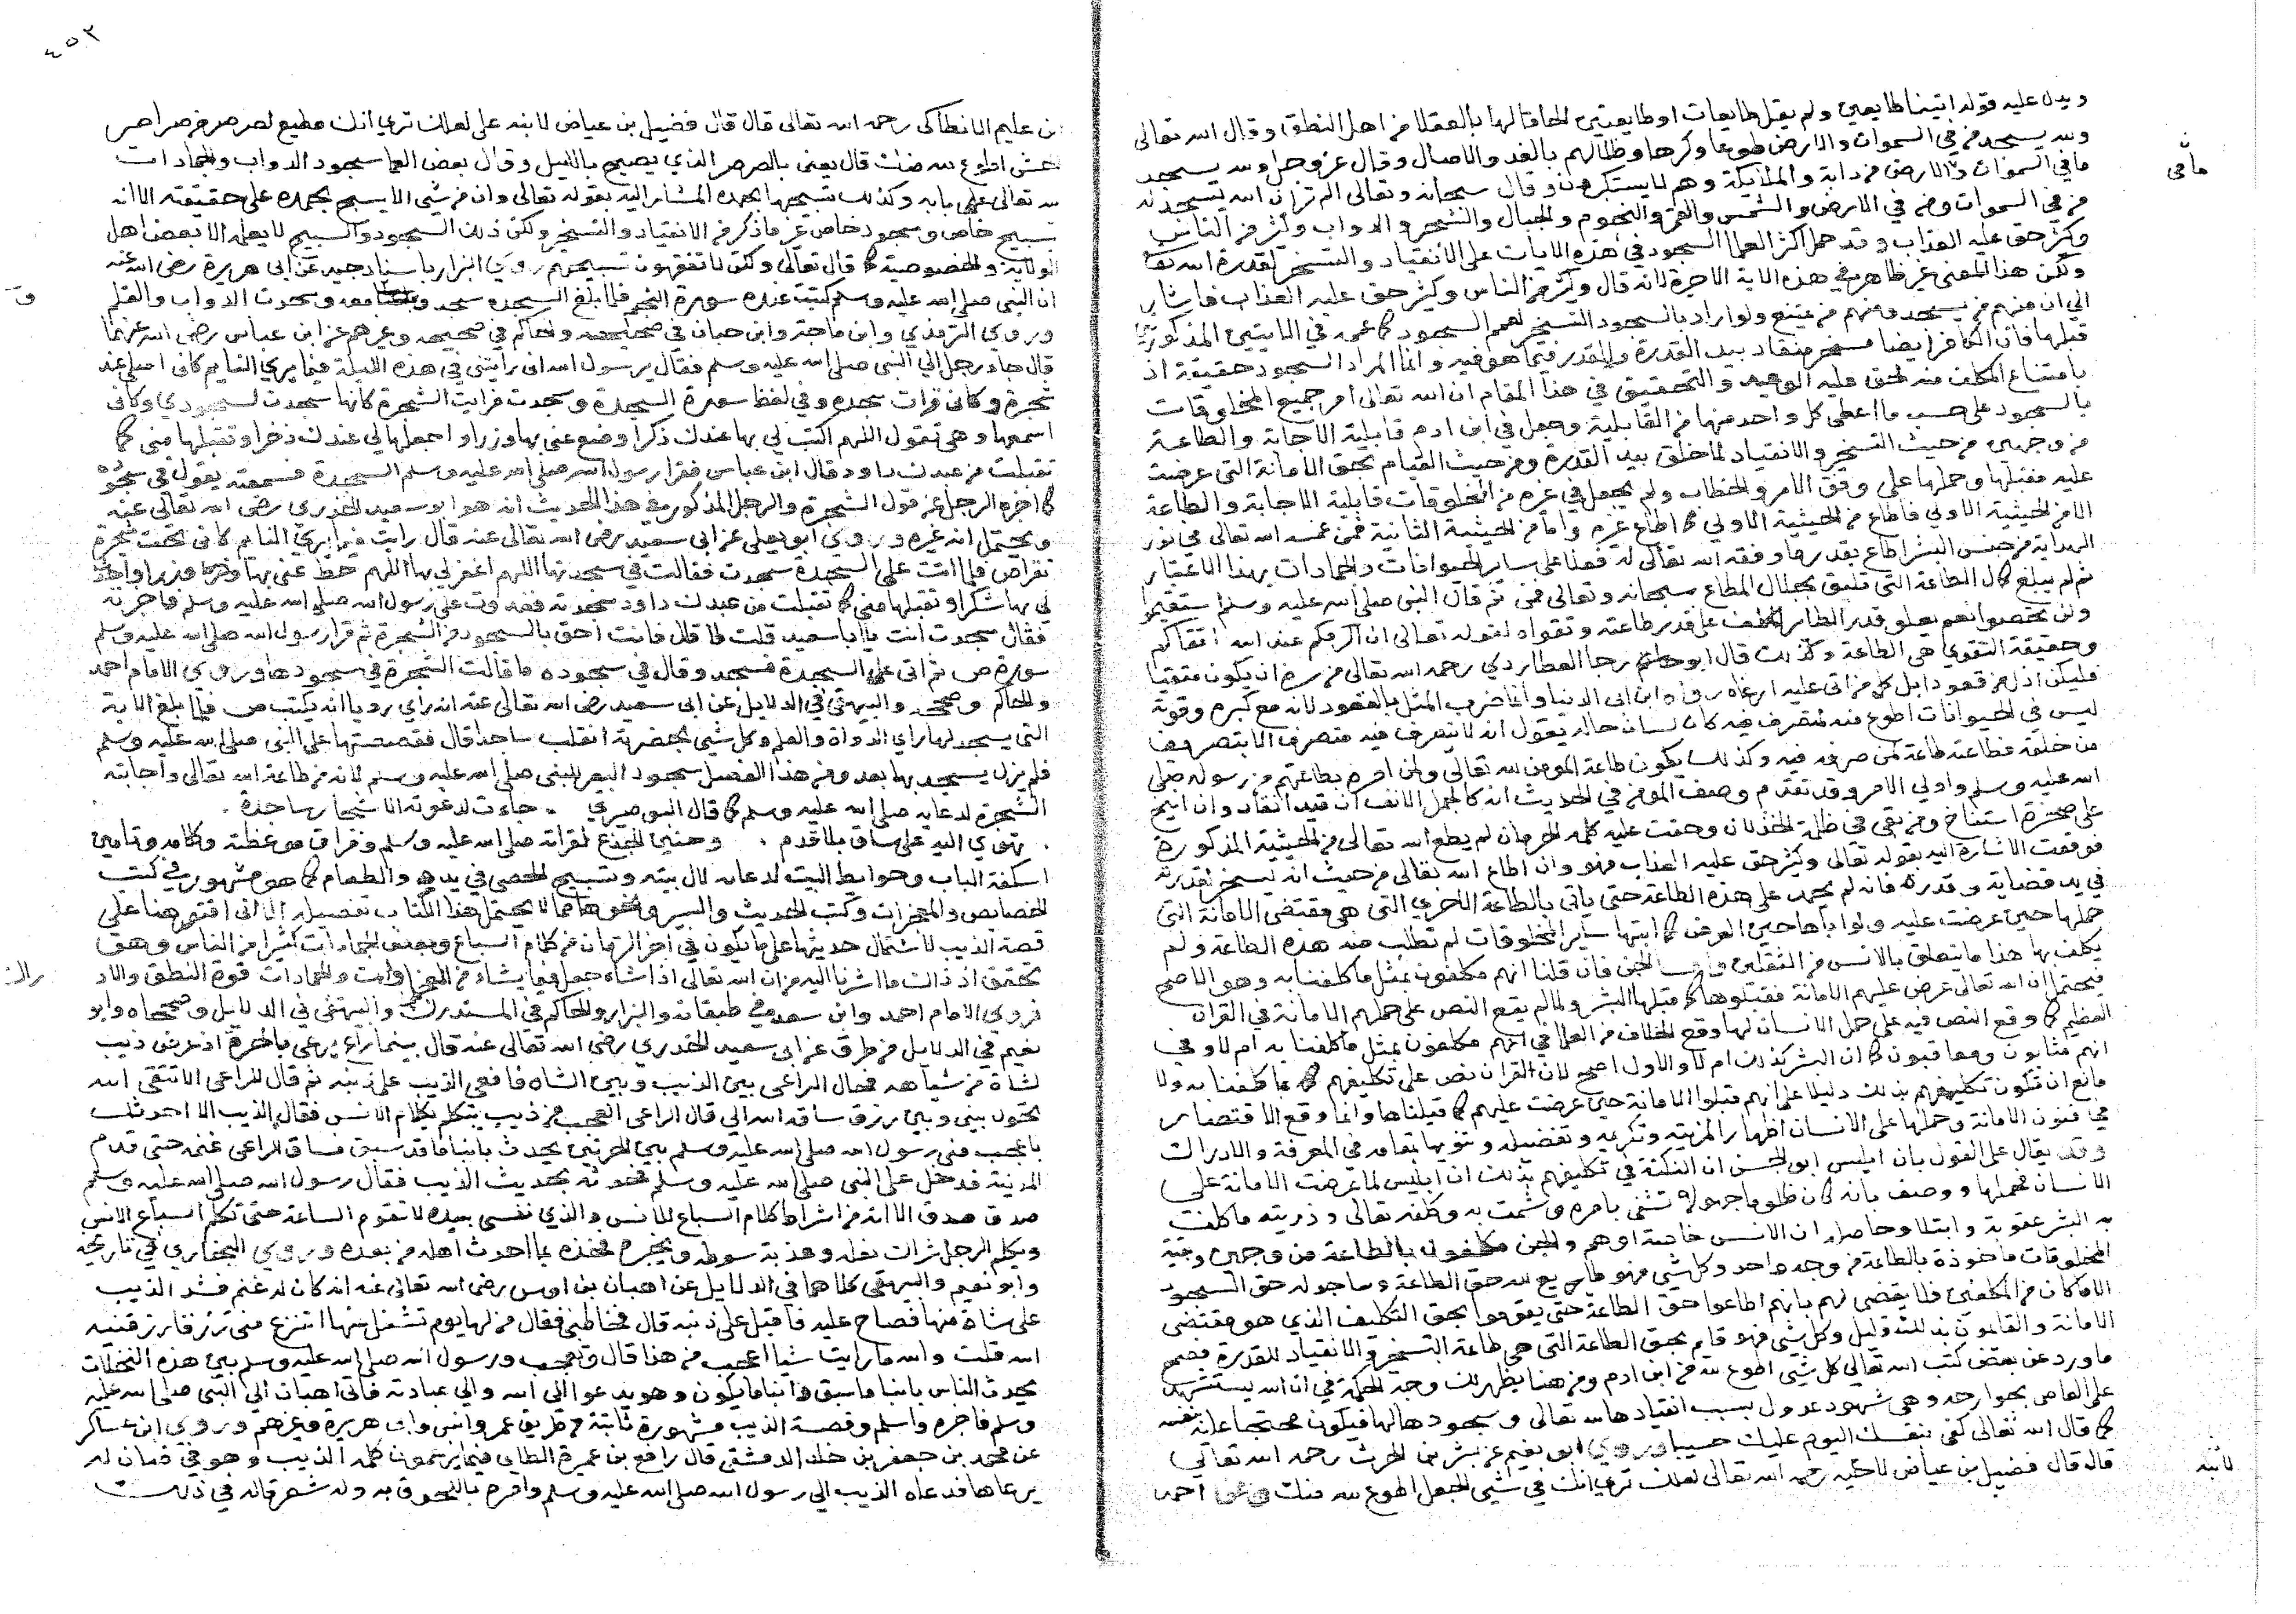 ويدل عليه قوله اتينا طايعين ولم يقل طايعات او طايعتين الحاقا لها بالعقلا من اهل النطق وقال الله تعالى
ولله يسجد من في السموات والارض طوعا وكرها وظلالهم بالغدو والاصال وقال عز وجل ولله يسجد
ما في السموات وما في الارض من دابة والملايكة وهم لا يستكبرون وقال سبحانه وتعالى الم تر ان الله يسجد له
من في السموات ومن في الارض والشمس والقمر والنجوم والجبال والشجر والدواب وكثير من الناس
وكثير حق عليه العذاب وقد حمل اكثر العلما السجود في هذه الايات على الانقياد والتسخير لقدرة الله تعالى
ولكن هذا المعنى غير ظاهر في هذه الاية الاخيرة لانه قال وكثير من الناس وكثير حق عليه العذاب فاشار
الى ان منهم من يسجد ومنهم من يمتنع ولو اراد بالسجود التسخير لعمم السجود كما عممه في الايتين المذكورتين
قبلها فان الكافر ايضا مسخر منقاد بيد القدرة والقدر فيما هو فيه وانما المراد السجود حقيقة اذ
بامتناع المكلف منه لحق عليه الوعيد والتحقيق في هذا المقام ان الله تعالى امر جميع المخلوقات
بالسجود على حسب ما اعطى كل واحد منها من القابلية وجعل في ابن ادم قابلية الاجابة والطاعة
من وجهين من حيث التسخير والانقياد لما خلق بيد القدرة ومن حيث القيام بحق الامانة التي عرضت
عليه فقبلها وحملها على وفق الامر والخطاب ولم يجعل في غيره من المخلوقات قابلية الاجابة والطاعة
الا من الحيثية الاولى فاطاع من الحيثية الاولى كما اطاع غيره واما من الحيثية الثانية فمن غمسه الله تعالى في نور
الهداية من جنس البشر اطاع بقدر ما وفقه الله تعالى له فضلا على ساير الحيوانات والجمادات بهذا الاعتبار
ثم لم يبلغ كمال الطاعة التي تليق بجلال المطاع سبحانه وتعالى فمن ثم قال النبي صلى الله عليه وسلم استقيموا
ولن تحصوا نعم يعلو قدر الطايع المكلف على قدر طاعته وتقواه لقوله تعالى ان اكرمكم عند الله اتقاكم
وحقيقة التقوى هي الطاعة وكذلك قال ابو رجا العطاردي رحمه الله تعالى من سره ان يكون متقيا
فليكن اذل من قعود ابل كل من اتى عليه ارغاه رواه ابن ابي الدنيا وانما ضرب المثل بالقعود لانه مع كبره وقوته
ليس في الحيوانات اطوع منه لمتصرف فيه كان لسان حاله يقول انه لا يتصرف فيه متصرف الا بتصريف
من خلقه فطاعته طاعة لمن صرفه فيه وكذلك يكون طاعة المومن لله تعالى ولمن امره بطاعتهم من رسوله صلى
الله عليه وسلم واولي الامر وقد تقدم وصف المومن في الحديث انه كالجمل الانف ان قيد انقاد وان انيخ
على صخرة استناخ ومن بقى في ظلمة الخذلان وحقت عليه كلمة الحرمان لم يطع الله تعالى من الحيثية المذكورة
فوقعت الاشارة اليه بقوله تعالى وكثير حق عليه العذاب فهو وان اطاع الله تعالى من حيث انه تسخر لقدرته
في يد قضايه وقدره فانه لم يحمد على هذه الطاعة حتى ياتي بالطاعة الاخرى التي هي مقتضى الامانة التي
حملها حين عرضت عليه ولو اباها حين العرض كما ابتها ساير المخلوقات لم تطلب منه هذه الطاعة ولم
يكلف بها هذا ما يتعلق بالانس من الثقلين واما الجن فان قلنا انهم مكلفون بمثل ما كلفنا به وهو الاصح
فيحتمل ان الله تعالى عرض عليهم الامانة فقبلوها كما قبلها البشر ولما لم يقع النص على حملهم الامانة في القران
العظيم كما وقع النص فيه على حمل الانسان لها وقع الخلاف من العلما في انهم مكلفون بمثل ما كلفنا به ام لا وفي
انهم مثابون ومعاقبون كما ان البشر كذلك ام لا والاول اصح لان القران نص على تكليفهم كما كلفنا به ولا
مانع ان تكون تكليفهم بذلك دليلا على انهم قبلوا الامانة حين عرضت عليهم كما قبلناها وانما وقع الاقتصار
في قبول الامانة وحملها على الانسان اظهارا لمزيته وتكريمه وتفضيله وتنويها بمقامه في المعرفة والادراك
وقد يقال على القول بان ابليس ابو الجن ان النكتة في تكليفهم بذلك ان ابليس لما عرضت الامانة على
الانسان فحملها ووصف بانه كان ظلوما جهولا تشفى بامره وشمت به وكلفه تعالى وذريته ما كلفت
به البشر عقوبة وابتلا وحاصله ان الانس خاصة او هم والجن مكلفون بالطاعة من وجهين وبقية
المخلوقات ماخوذة بالطاعة من وجه واحد وكل شي فهو طايع لله حق الطاعة وساجد له حق السجود
الا ما كان من المكلفين فلا يقضى لهم بانهم اطاعوا حق الطاعة حتى يقوموا بحق التكليف الذي هو مقتضى
الامانة والقايمون بذلك قليل وكل شي فهو قايم بحق الطاعة التي هي طاعة التسخير والانقياد للقدرة فصح
ما ورد عن بعض كتب الله تعالى كل شي اطوع لله من ابن ادم ومن هنا يظهر لك وجه الحكمة في ان الله يستشهد
على العاصي بجوارحه وهي شهود عدول بسبب انقيادها لله تعالى وسجودها لها فيكون محتجا عليه بنفسه
كما قال الله تعالى كفى بنفسك اليوم عليك حسيبا وروى ابو نعيم عن بشر بن الحرث رحمه الله تعالى
قال قال فضيل بن عياض لاخيه رحمه الله تعالى لعلك ترى انك في شي الجعل اطوع لله منك وعن احمد
ما في
لابنه
٤٥٢
بن عليم الانطاكي رحمه الله تعالى قال قال فضيل بن عياض لابنه علي لعلك ترى انك مطيع لصرصر من صراصر
الحش اطوع لله منك قال يعني بالصرصر الذي يصيح بالليل وقال بعض العلما سجود الدواب والجمادات
لله تعالى على بابه وكذلك تسبيحها بحمده المشار اليه بقوله تعالى وان من شي الا يسبح بحمده على حقيقته الا انه
تسبيح خاص وسجود خاص غير ما ذكر من الانقياد والتسخير ولكن ذلك السجود والتسبيح لا يعلمه الا بعض اهل
الولاية والخصوصية كما قال تعالى ولكن لا تفقهون تسبيحهم روى البزار باسناد جيد عن ابي هريرة رضي الله عنه
ان النبي صلى الله عليه وسلم كتبت عنده سورة النجم فلما بلغ السجدة سجد وسجدنا معه وسجدت الدواة والقلم
وروى الترمذي وابن ماجة وابن حبان في صحيحه والحاكم في صحيحه وغيرهم عن ابن عباس رضي الله عنهما
قال جاء رجل الى النبي صلى الله عليه وسلم فقال يرسول الله اني رايتني في هذه الليلة فيما يرى النايم كاني اصلي عند
شجرة وكاني قرات سجدة وفي لفظ سورة السجدة وسجدت فرايت الشجرة كانها سجدت لسجودي وكاني
اسمعها وهي تقول اللهم اكتب لي بها عندك ذكرا وضع عني بها وزرا واجعلها لي عندك ذخرا وتقبلها مني كما
تقبلت من عبدك داود قال ابن عباس فقرا رسول الله صلى الله عليه وسلم السجدة فسمعته يقول في سجوده
كما اخبره الرجل عن قول الشجرة والرجل المذكور في هذا الحديث انه هو ابو سعيد الخدري رضي الله تعالى عنه
ويحتمل انه غيره وروى ابو يعلى عن ابي سعيد رضي الله تعالى عنه قال رايت فيما يرى النايم كاني تحت شجرة
تقرا ص فلما اتت على السجدة سجدت فقالت في سجدتها اللهم اغفر لي بها اللهم حط عني بها وزرا واحدث
لي بها شكرا وتقبلها مني كما تقبلت من عبدك داود سجدته فغدوت على رسول الله صلى الله عليه وسلم فاخبرته
فقال سجدت انت يا ابا سعيد قلت لا قال فانت احق بالسجود من الشجرة ثم قرا رسول الله صلى الله عليه وسلم
سورة ص ثم اتى على السجدة فسجد وقال في سجوده ما قالت الشجرة في سجودها وروى الامام احمد
والحاكم وصححه والبيهقي في الدلايل عن ابي سعيد رضي الله تعالى عنه انه راى رويا انه يكتب ص فلما بلغ الاية
التي يسجد لها راى الدواة والقلم وكل شي بحضرته انقلب ساجدا قال فقصصتها على النبي صلى الله عليه وسلم
فلم يزل يسجد بها بعد ومن هذا الفصل سجود البعير للنبي صلى الله عليه وسلم لانه من طاعة الله تعالى واجابته
الشجرة لدعايه صلى الله عليه وسلم كما قال البوصيري . جاءت لدعوته الاشجار ساجدة .
. تهوى اليه على ساق بلا قدم . وحنين الجذع لقراته صلى الله عليه وسلم وفراق موعظته وكلامه وتامين
اسكفة الباب وحوايط البيت لدعايه لال بيته وتسبيح الحصى في يديه والطعام كما هو مشهور في كتب
الخصايص والمعجزات وكتب الحديث والسير ونحوها مما لا يحتمل هذا الكتاب تفصيله الا اني اقتصر هنا على
قصة الذيب لاشتمال حديثها على ما يكون في اخر الزمان من كلام السباع وبعض الجمادات كثيرا من الناس وهو
تحقق اذ ذاك ما اشرنا اليه من ان الله تعالى اذا شاء جعل فيما يشاء من العجماوات والجمادات قوة النطق والادراك
فروى الامام احمد وابن سعد في طبقاته والبزار والحاكم في المستدرك والبيهقي في الدلايل وصححاه وابو
نعيم في الدلايل من طرق عن ابي سعيد الخدري رضي الله تعالى عنه قال بينما راع يرعى بالحرة اذ عرض ذيب
لشاة من شياهه فحال الراعي بين الذيب وبين الشاة فاقعى الذيب على ذنبه ثم قال للراعي الا تتقي الله
تحول بيني وبين رزق ساقه الله الي قال الراعي العجب من ذيب يتكلم بكلام الانس فقال الذيب الا احدثك
باعجب مني رسول الله صلى الله عليه وسلم بين الحرتين يحدث بانبا ما قد سبق فساق الراعي غنمه حتى قدم
المدينة فدخل على النبي صلى الله عليه وسلم فحدثه بحديث الذيب فقال رسول الله صلى الله عليه وسلم
صدق صدق الا انه من اشراط كلام السباع للانس والذي نفسي بيده لا تقوم الساعة حتى تكلم السباع الانس
ويكلم الرجل شراك نعله وعذبة سوطه ويخبره فخذه بما احدث اهله من بعده وروى البخاري في تاريخه
وابو نعيم والبيهقي كلاهما في الدلايل عن اهبان بن اوس رضي الله تعالى عنه انه كان له غنم فشد الذيب
على شاة منها فصاح عليه فاقعى على ذنبه قال فخاطبني فقال من لها يوم تشغل عنها انتزع مني رزقا رزقنيه
الله قلت والله ما رايت شيا اعجب من هذا قال وتعجب ورسول الله صلى الله عليه وسلم بين هذه النخلات
يحدث الناس بانبا ما سبق وانبا ما يكون وهو يدعو الى الله والى عبادته فاتى اهبان الى النبي صلى الله عليه
وسلم فاخبره واسلم وقصة الذيب مشهورة ثابتة من طريق عمر وانس وابي هريرة وغيرهم وروى ابن عساكر
عن محمد بن جعفر بن خلد الدمشقي قال رافع بن عميرة الطايي فيما يزعمون كلمه الذيب وهو في ضان له
يرعاها فدعاه الذيب الى رسول الله صلى الله عليه وسلم وامره باللحوق به وله شعر قاله في ذلك